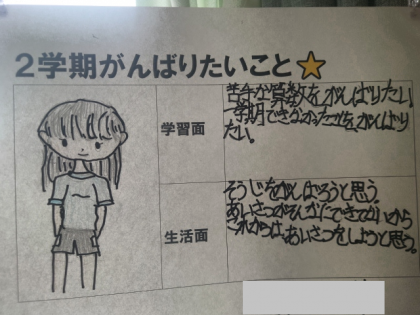 2学期がんばりたいこと
学習面
苦手な算数をがんばりたい
一学期できなかったから、がんばり
たい。
生活面
そうじをがんばろうと思う。
あいさつがそんなにできてないから
これからは、あいさつをしようと思う。